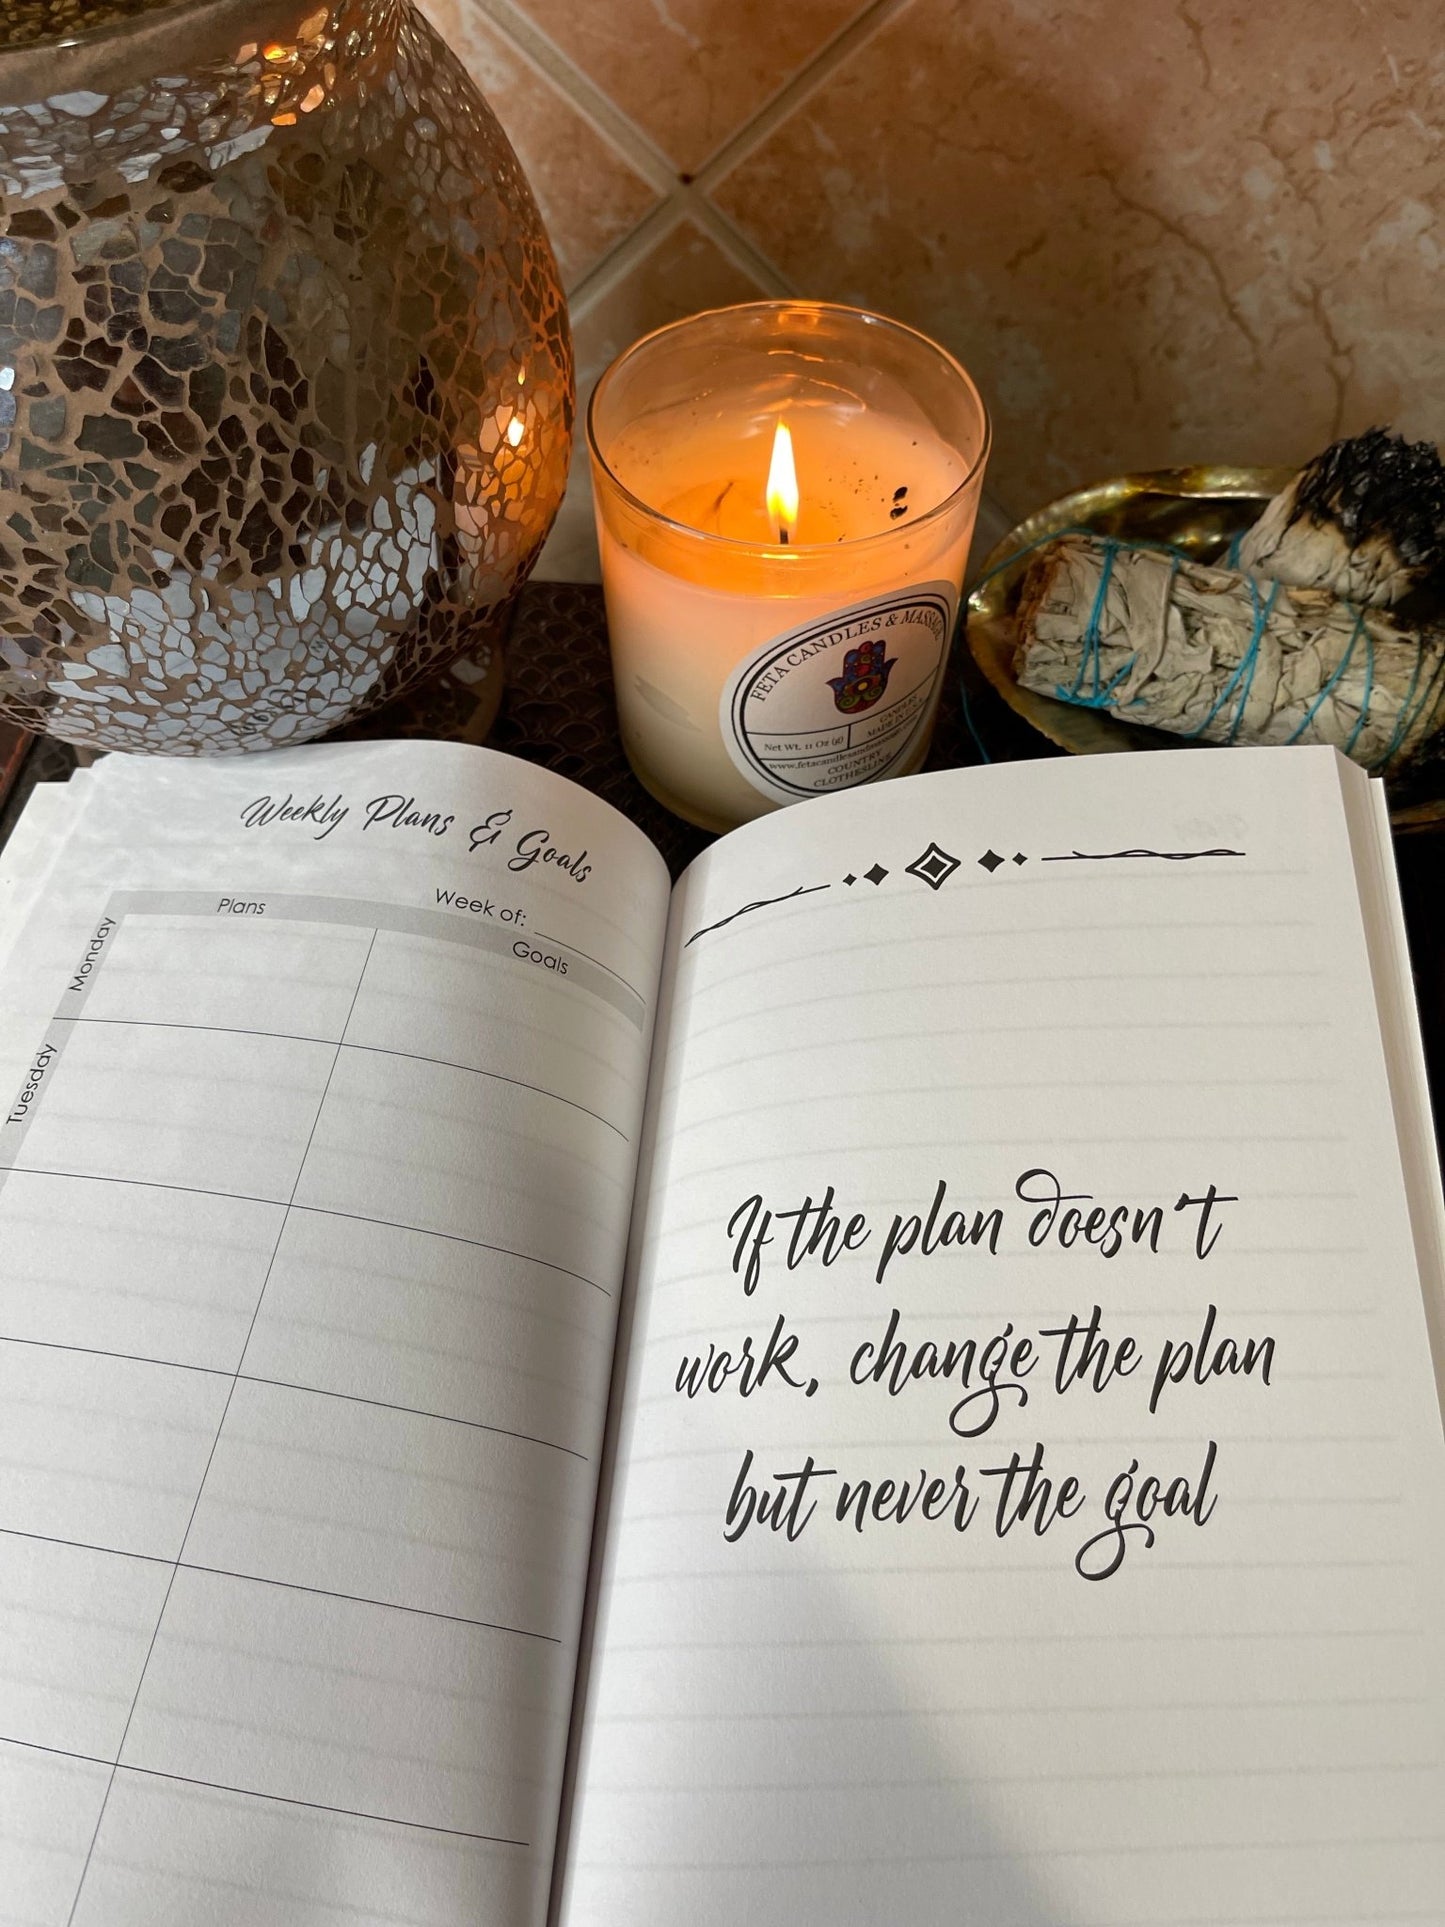 FETA CANDLES & MASSAGE
CANDLES
MADE IN
Net Wt. 11 Oz (g)
COUNTRY
CLOTHESLINE
Weekly Plans & Goals
Week of:
Plans
Goals
Monday
Tuesday
If the plan doesn't
work, change the plan
but never the goal